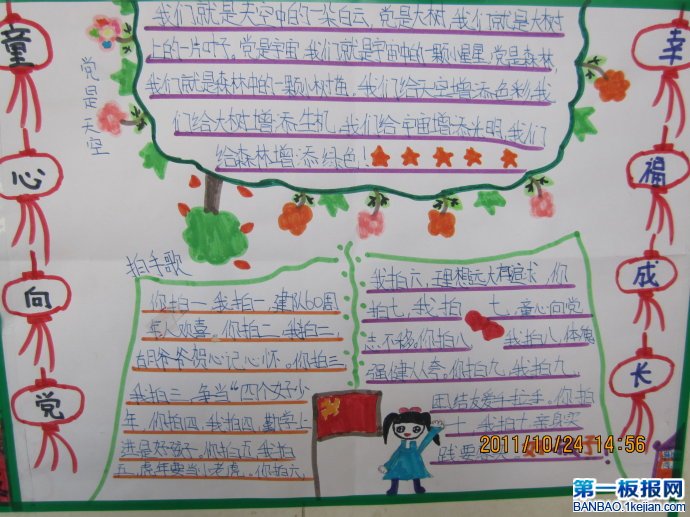 童心向党
幸福成长
党是天空
我们就是天空中的一朵白云,党是大树,我们就是大树
上的一片叶子。党是宇宙,我们就是宇宙中的一颗小星星,党是森林,
我们就是森林中的一颗小树苗,我们给天空增添色彩,我
们给大树增添生机,我们给宇宙增添光明,我们
给森林增添绿色!
拍手歌
你拍一,我拍一,建队60周
年人欢喜。你拍二,我拍二,
爷爷贺心记心怀。你拍三
我拍三,争当“四个好少
年,你拍四,我拍四,勤学上
进是好孩子。你拍五,我拍
五,虎年要当小老虎。你拍六,
我拍六,理想远大再追求,你
拍七,我拍七,童心向党
志不移。你拍八,我拍八,体魄
强健人人夸。你拍九,我拍九,
团结友爱手拉手。你拍
十,我拍十,亲身实
践要
2011/10/24 14:56
第一板报网
BANBAO.1kejian.com